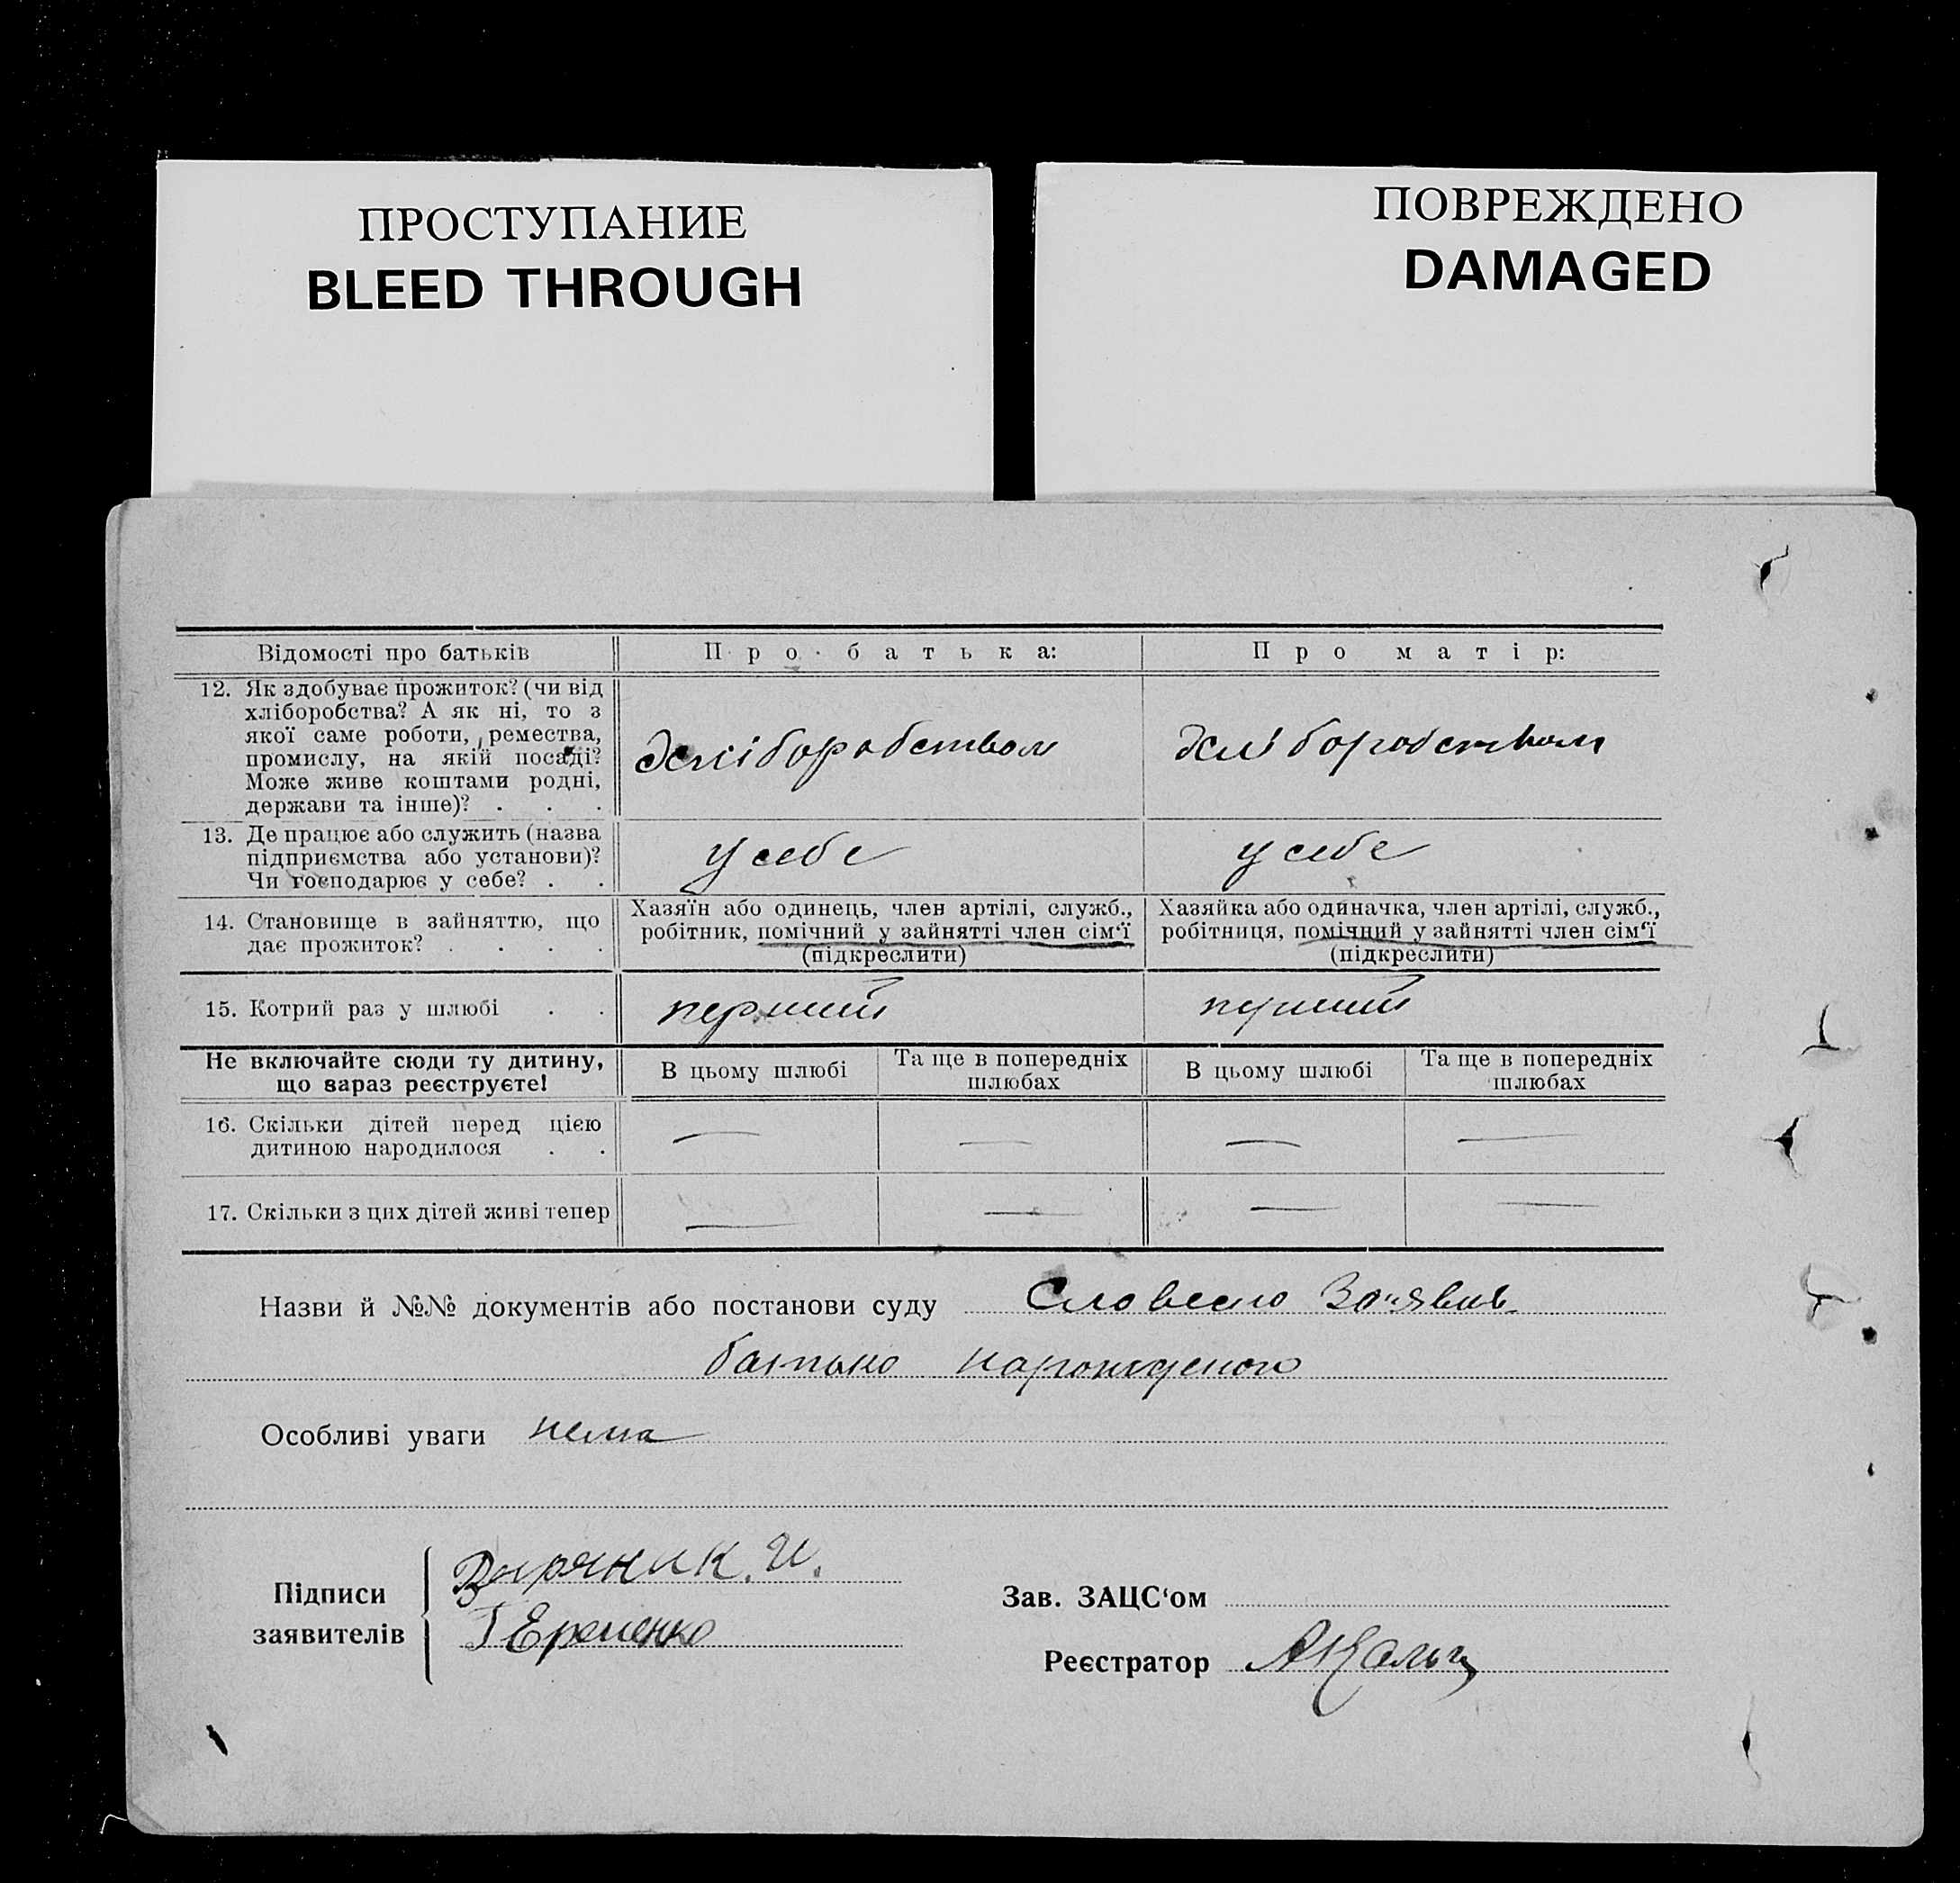 ПРОСТУПАНИЕ
BLEED THROUGH
ПОВРЕЖДЕНО
DAMAGED
Відомості про батьків
Про батька:
Про матір:
12. Як здобуває прожиток? (чи від
хліборобства? А як ні, то з
якої саме роботи, ремества,
промислу, на якій посаді?
Може живе коштами родні,
держави та інше)? . . .
хліборобством
хліборобством
13. Де працює або служить (назва
підприємства або установи)?
Чи господарює у себе? . .
у себе
у себе
14. Становище в зайняттю, що
дає прожиток? . . . .
Хазяїн або одинець, член артілі, служб.,
робітник, помічний у зайнятті член сім‘ї
(підкреслити)
Хазяйка або одиначка, член артілі, служб.,
робітниця, помічний у зайнятті член сім‘ї
(підкреслити)
15. Котрий раз у шлюбі . .
перший
перший
Не включайте сюди ту дитину,
що вараз реєструєте!
В цьому шлюбі
Та ще в попередніх
шлюбах
В цьому шлюбі
Та ще в попередніх
шлюбах
16. Скільки дітей перед цією
дитиною народилося . .
— — — —
17. Скільки з цих дітей живі тепер
— — — —
Назви й №№ документів або постанови суду Словесно Заявив
батько народженого
Особливі уваги нема
Підписи
заявителів
И.
Г Еременко
Зав. ЗАЦС‘ом
Реєстратор